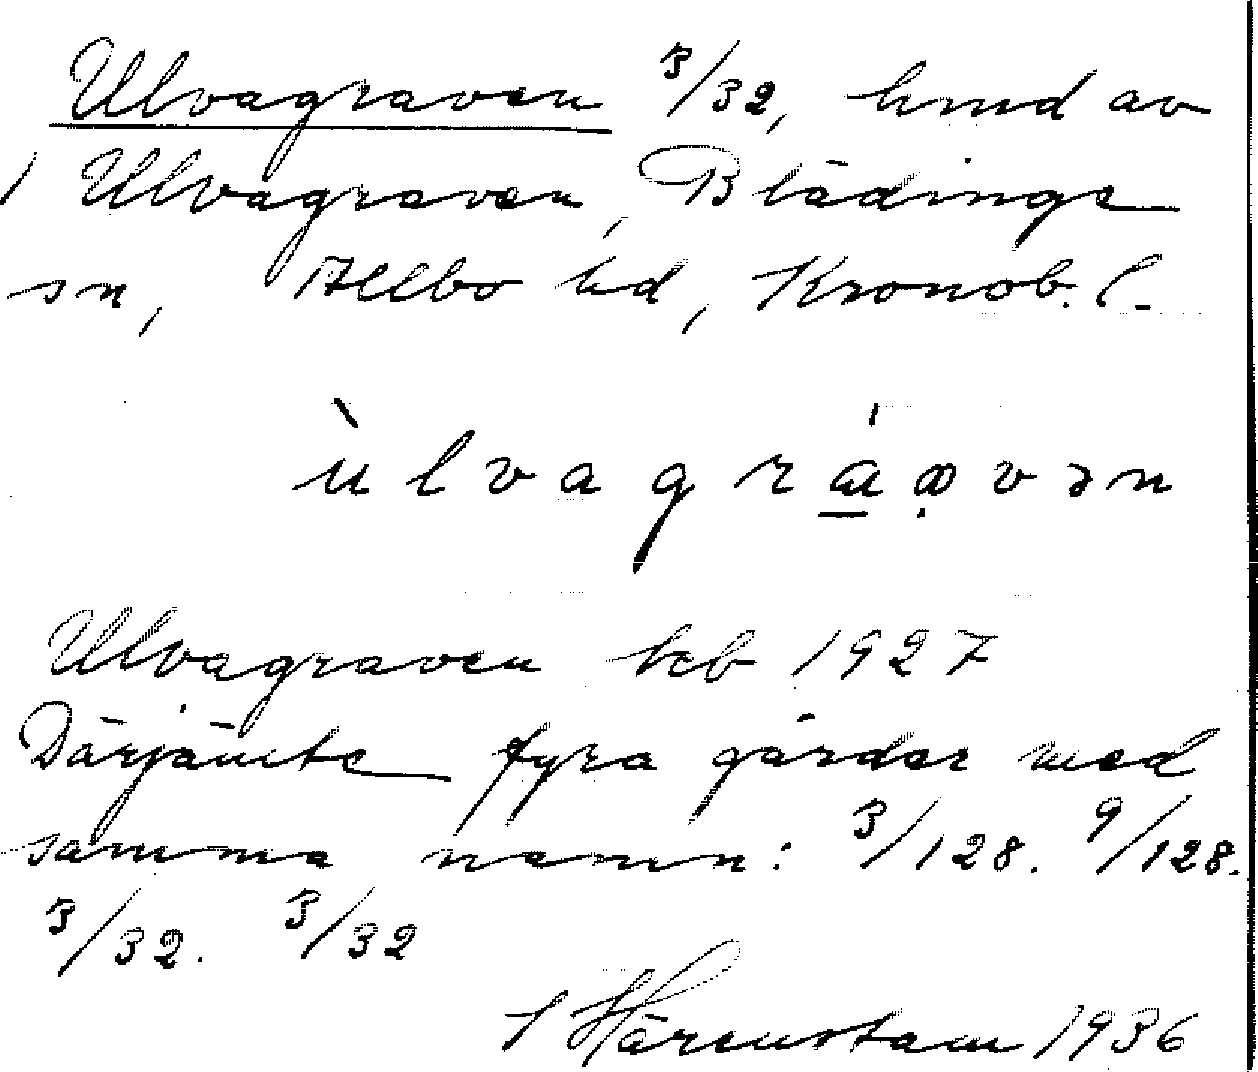 Ulvagraven 3/32, hmd av
1 Ulvagraven, Blädinge
sn, Allbo hd, Kronob. l.
ùlvagrávən
Ulvagraven beb 1927
Därjämte fyra gårdar med
samma namn: 3/128. 9/128.
3/32. 3/32
S Härenstam 1936